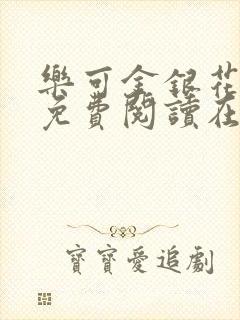 樂可金銀花
免費閱讀在
寶寶愛追劇